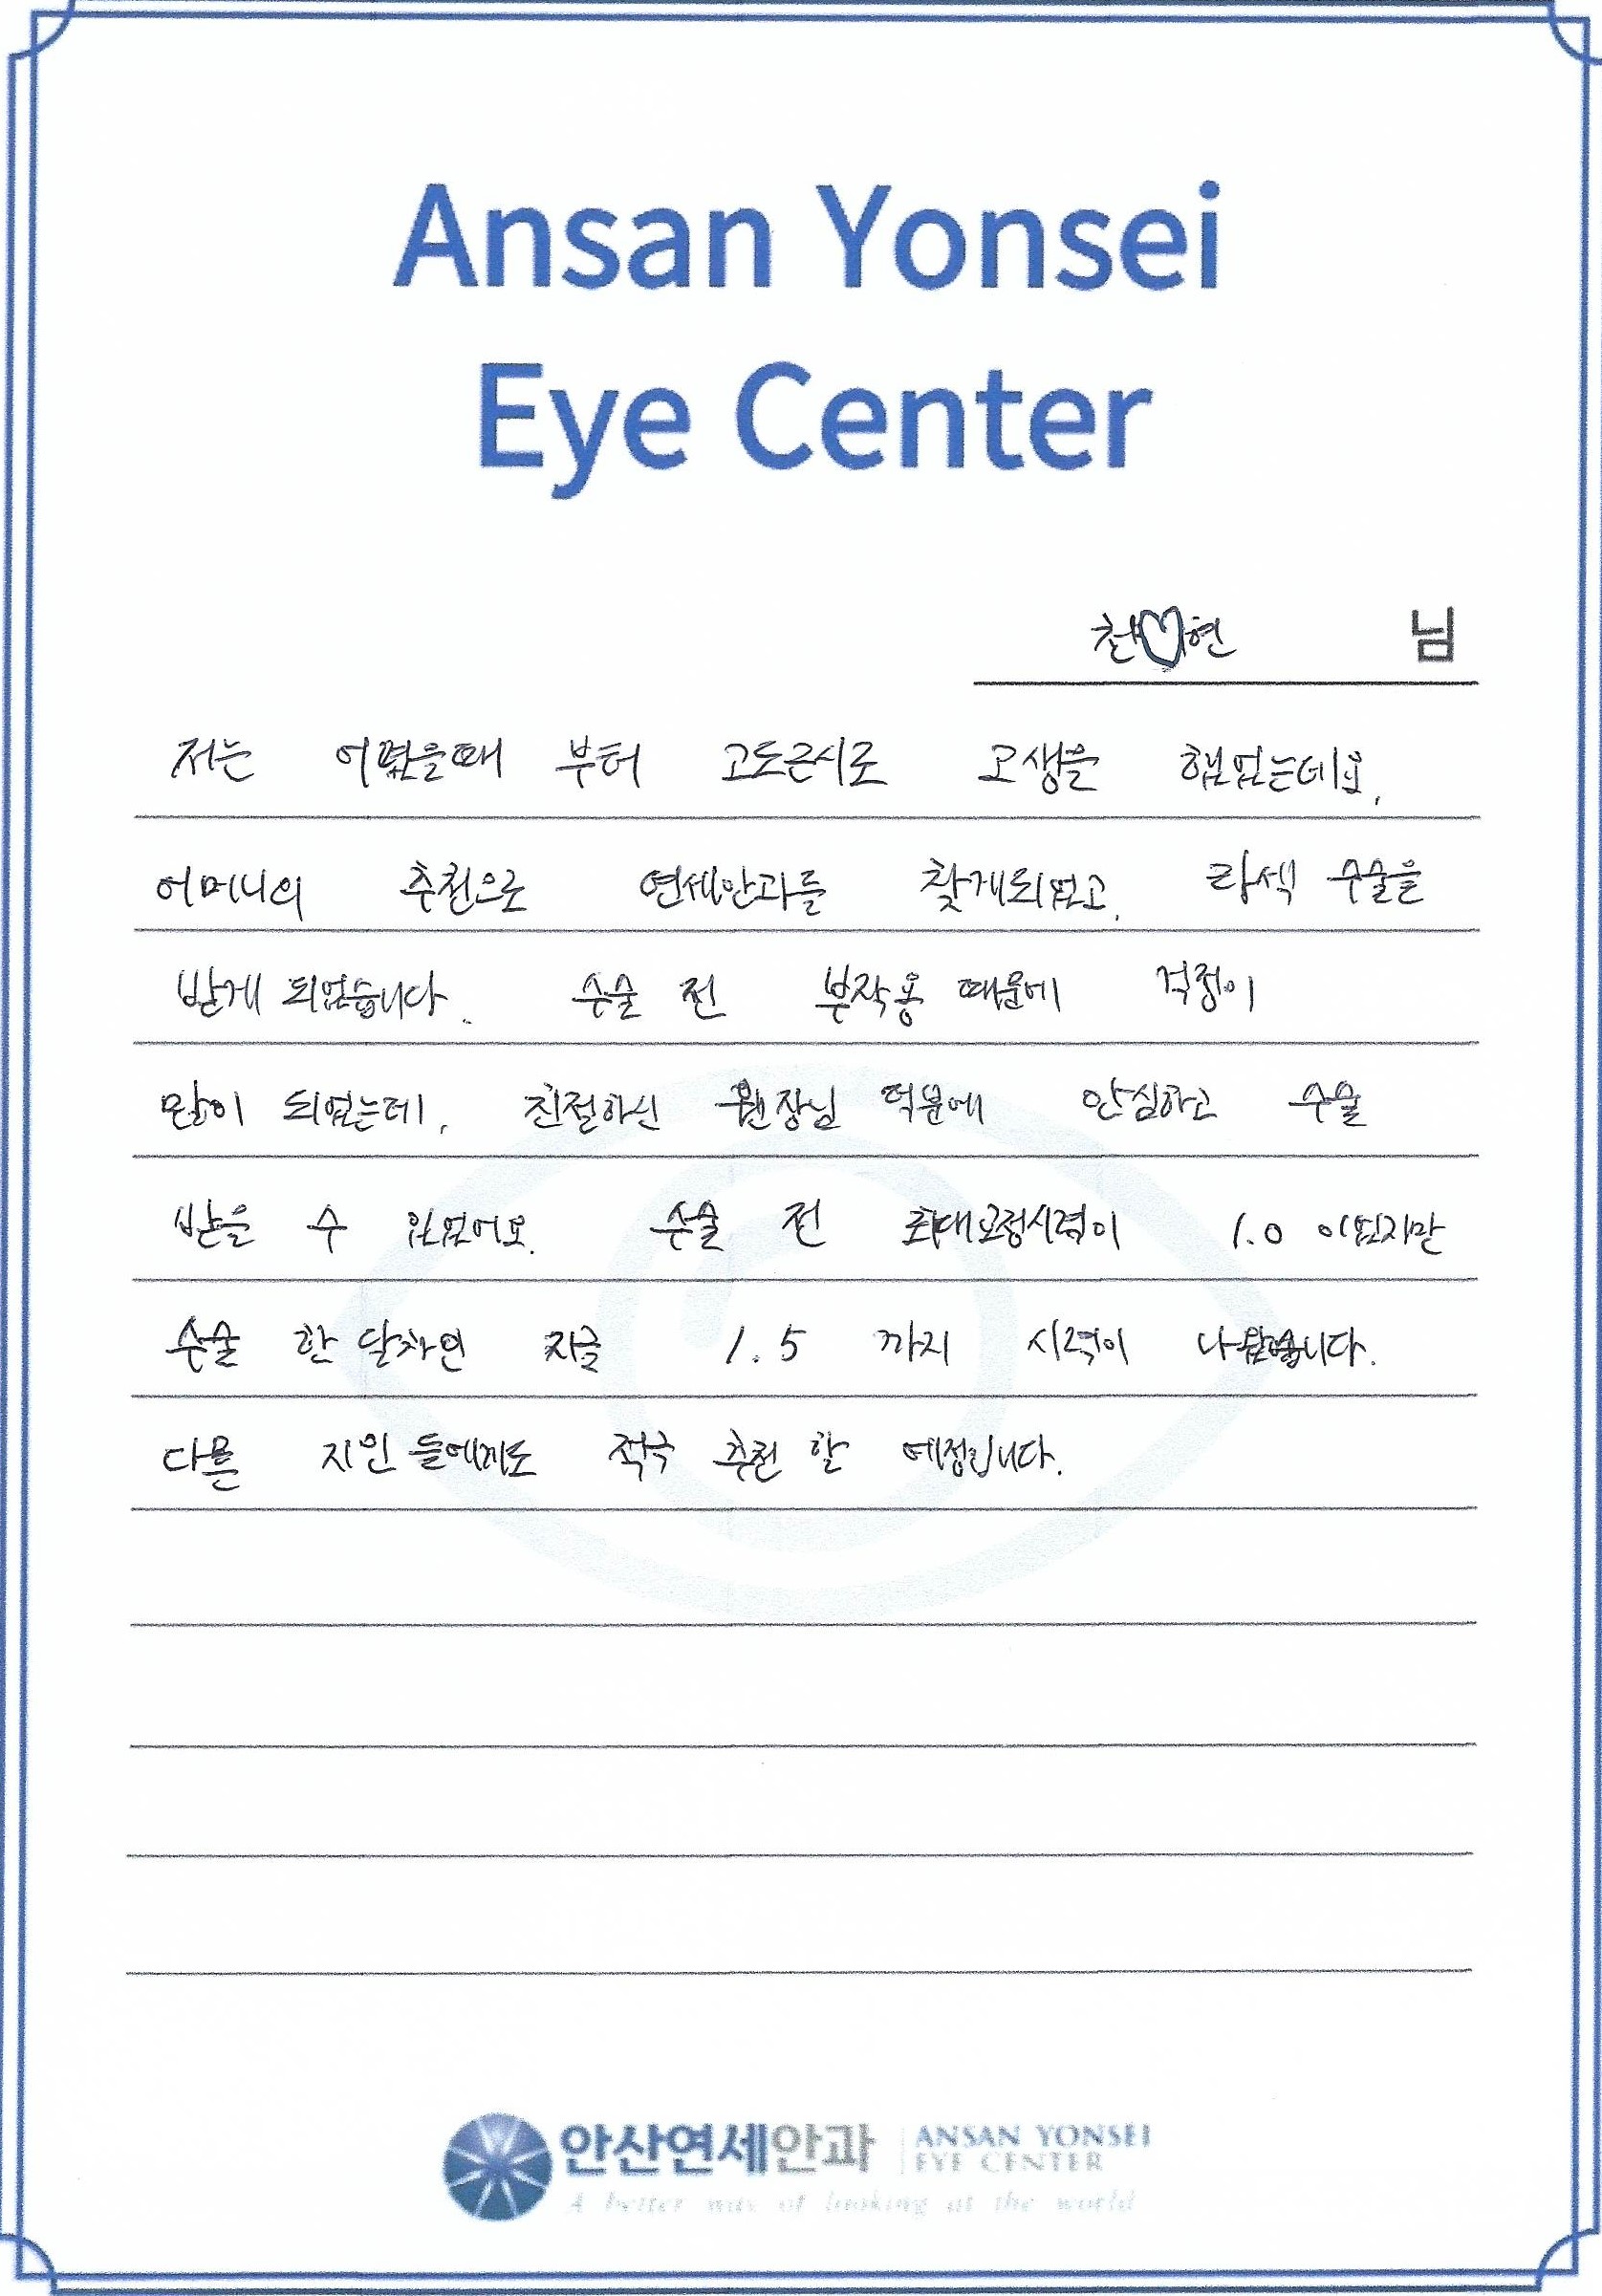 Ansan Yonsei
Eye Center
천♡현 님
저는 어렸을때 부터 고도근시로 고생을 했었는데요,
어머니의 추천으로 연세안과를 찾게되었고, 라섹 수술을
받게 되었습니다. 수술 전 부작용 때문에 걱정이
많이 되었는데, 친절하신 원장님 덕분에 안심하고 수술
받을 수 있었어요. 수술 전 최대교정시력이 1.0 이었지만
수술 한 달차인 지금 1.5 까지 시력이 나왔습니다.
다른 지인 들에게도 적극 추천 할 예정입니다.
안산연세안과 ANSAN YONSEI
EYE CENTER
A better way of looking at the world